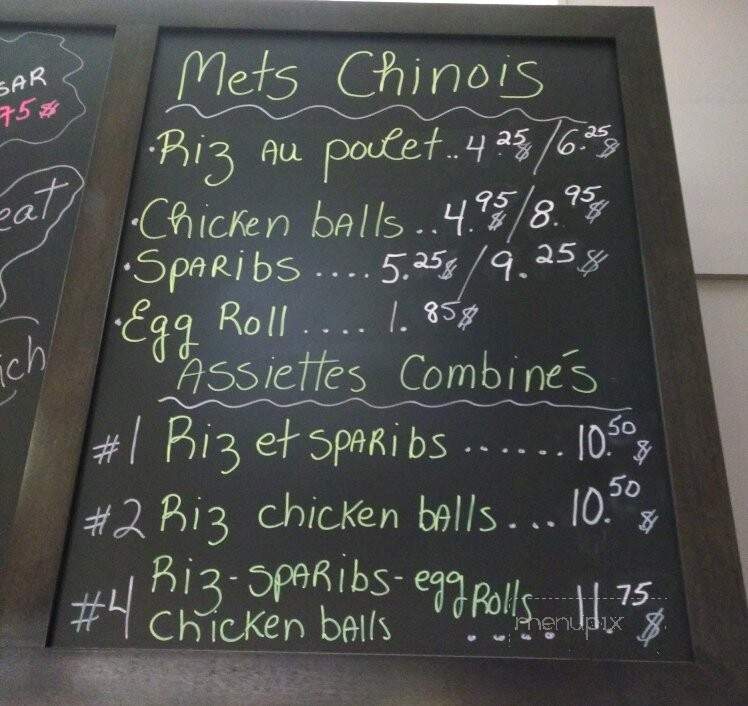 SAR
75$
eat
ich
Mets Chinois
·Riz Au poulet..4.25$/6.25$
·Chicken bAlls ..4.95$/8.95$
·SpARibs ....5.25$/9.25$
·Egg Roll ....1.85$
Assiettes Combinés
#1 Riz et spARibs ......10.50$
#2 Riz chicken bAlls...10.50$
#4 Riz-spARibs-egg Rolls 11.75$
chicken bAlls ....
menupix